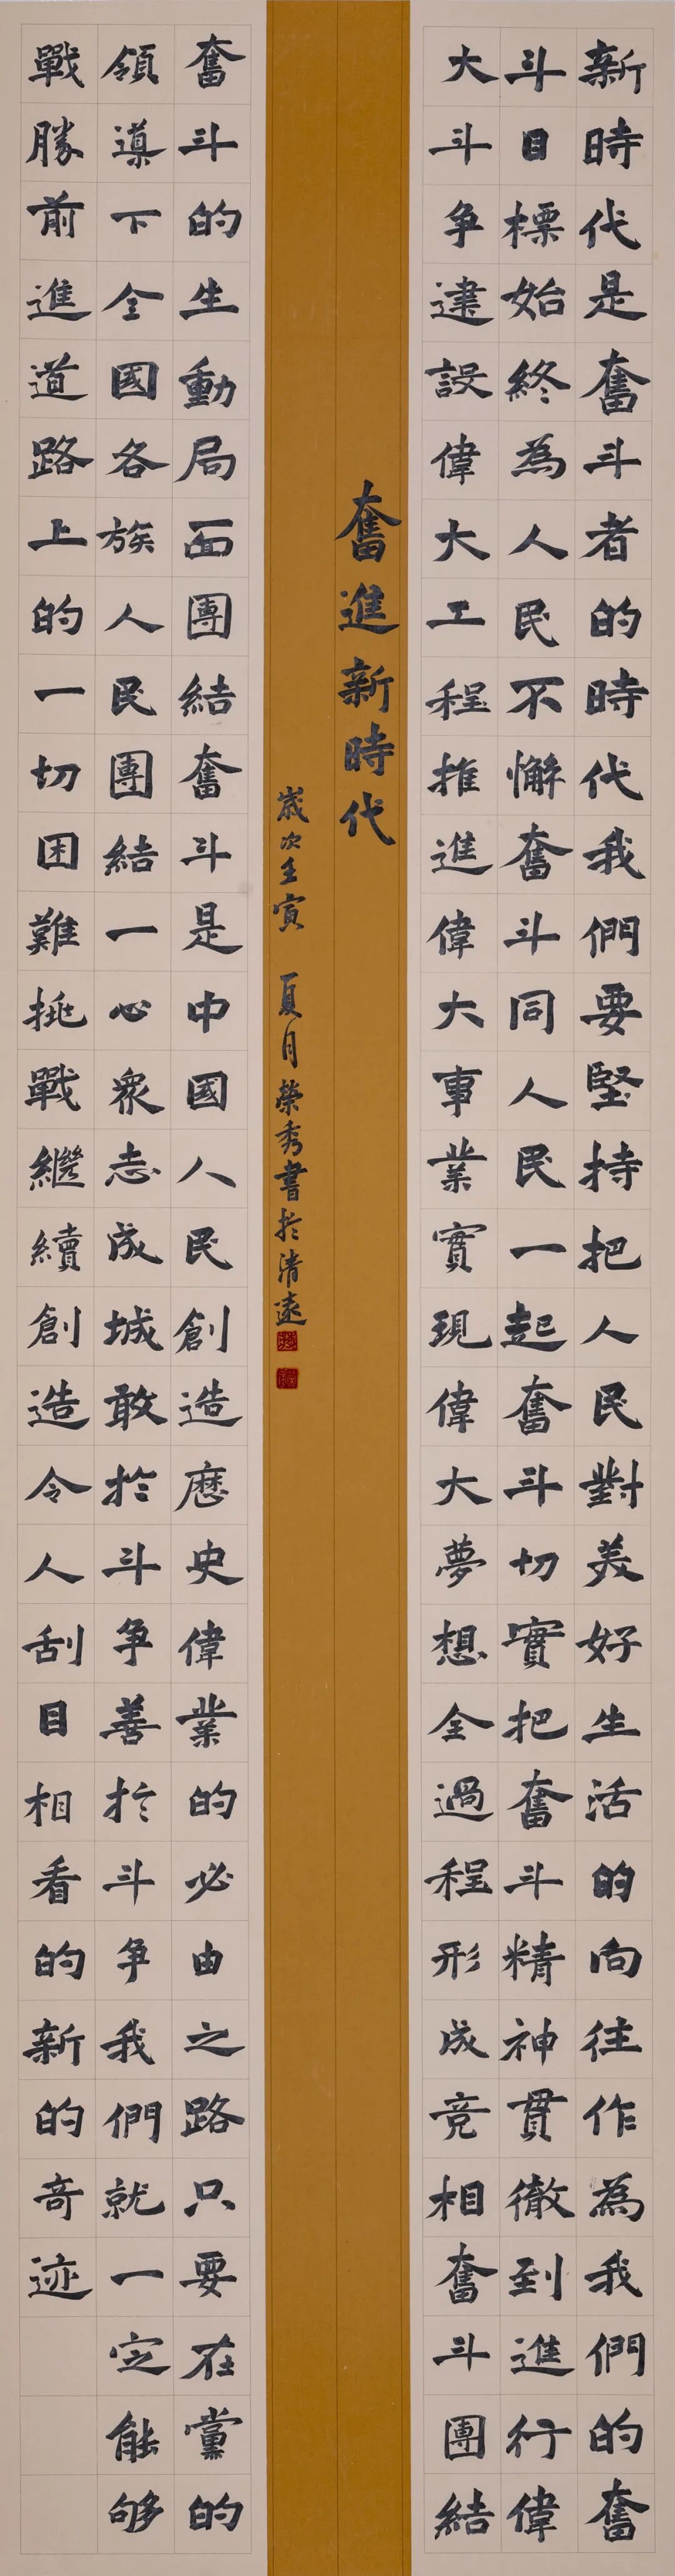 新時代是奮斗者的時代我們要堅持把人民對美好生活的向往作為我們的奮
斗目標始終為人民不懈奮斗同人民一起奮斗切實把奮斗精神貫徹到進行偉
大斗争建設偉大工程推進偉大事業實現偉大夢想全過程形成竞相奮斗團結
奮進新時代
歲次壬寅 夏月榮秀書於清遠
奮斗的生動局面團結奮斗是中國人民創造歷史偉業的必由之路只要在黨的
領導下全國各族人民團結一心衆志成城敢於斗争善於斗争我們就一定能够
戰勝前進道路上的一切困難挑戰繼續創造令人刮目相看的新的奇迹